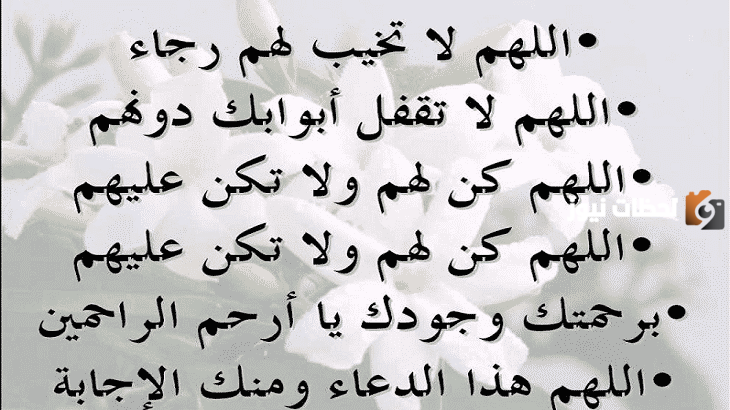 •اللهم لا تخيب لهم رجاء
•اللهم لا تقفل أبوابك دونهم
•اللهم كن لهم ولا تكن عليهم
لحظات نيوز
•اللهم كن لهم ولا تكن عليهم
•برحمتك وجودك يا أرحم الراحمين
•اللهم هذا الدعاء ومنك الإجابة